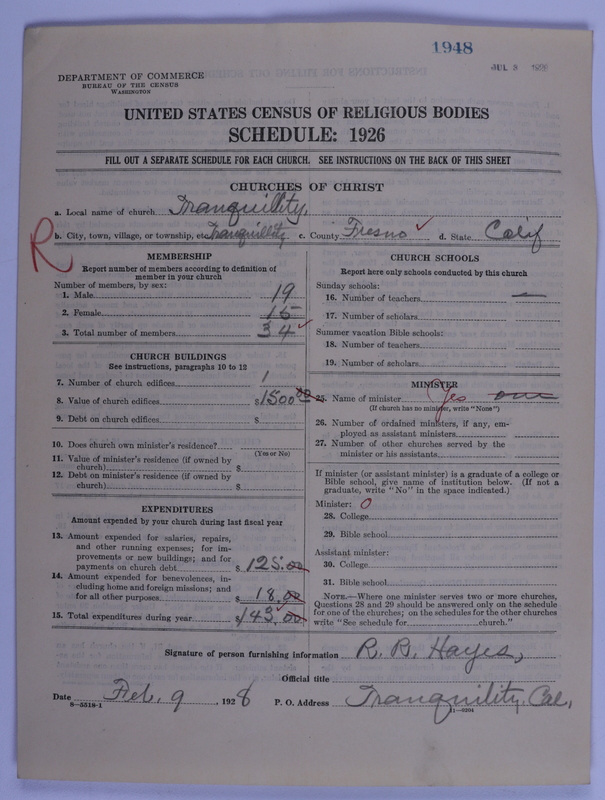 1948
JUL 3
DEPARTMENT OF COMMERCE
BUREAU OF THE CENSUS
WASHINGTON
UNITED STATES CENSUS OF RELIGIOUS BODIES
SCHEDULE: 1926
FILL OUT A SEPARATE SCHEDULE FOR EACH CHURCH. SEE INSTRUCTIONS ON THE BACK OF THIS SHEET
CHURCHES OF CHRIST
a. Local name of church Tranquillity,
R
b. City, town, village, or township, etc. Tranquillity c. County Fresno ✓ d. State Calif
MEMBERSHIP
Report number of members according to definition of
member in your church
Number of members, by sex:
1. Male 19
2. Female 15
3. Total number of members 34 ✓
CHURCH BUILDINGS
See instructions, paragraphs 10 to 12
7. Number of church edifices 1
8. Value of church edifices $1500 00
9. Debt on church edifices $
10. Does church own minister's residence?
(Yes or No)
11. Value of minister's residence (if owned by
church) $
12. Debt on minister's residence (if owned by
church) $
EXPENDITURES
Amount expended by your church during last fiscal year
13. Amount expended for salaries, repairs,
and other running expenses; for im-
provements or new buildings; and for
payments on church debt $125.00
14. Amount expended for benevolences, in-
cluding home and foreign missions; and
for all other purposes $18.00
15. Total expenditures during year $143.00
CHURCH SCHOOLS
Report here only schools conducted by this church
Sunday schools:
16. Number of teachers —
17. Number of scholars
Summer vacation Bible schools:
18. Number of teachers
19. Number of scholars
MINISTER
25. Name of minister Yes one
(If church has no minister, write "None")
26. Number of ordained ministers, if any, em-
ployed as assistant ministers
27. Number of other churches served by the
minister or his assistants
If minister (or assistant minister) is a graduate of a college or
Bible school, give name of institution below. (If not a
graduate, write "No" in the space indicated.)
Minister: 0
28. College
29. Bible school
Assistant minister:
30. College
31. Bible school
NOTE.—Where one minister serves two or more churches,
Questions 28 and 29 should be answered only on the schedule
for one of the churches; on the schedules for the other churches
write "See schedule for church."
Signature of person furnishing information R. R. Hayes,
Official title
Date Feb. 9, 1928 P. O. Address Tranquility, Cal,
8—5518-1
11—9204